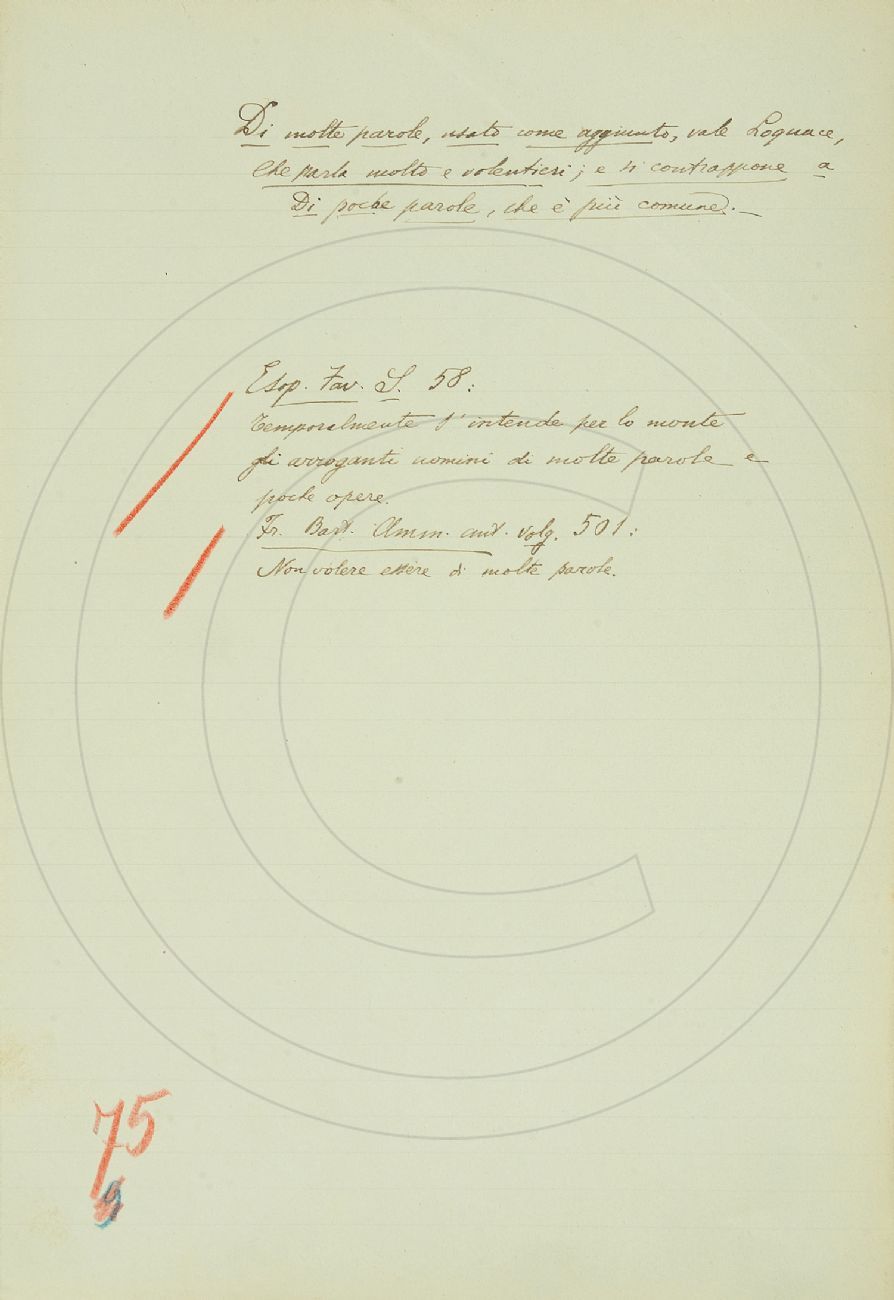 Di molte parole, usato come aggiunto, vale Loquace,
Che parla molto e volentieri; e si contrappone a
Di poche parole, che è più comune. —
Esop. Fav. S. 58:
Temporalmente s' intende per lo monte
gli arroganti uomini di molte parole e
poche opere.
Fr. Bart. Amm. ant. volg. 501:
Non volere essere di molte parole.
75